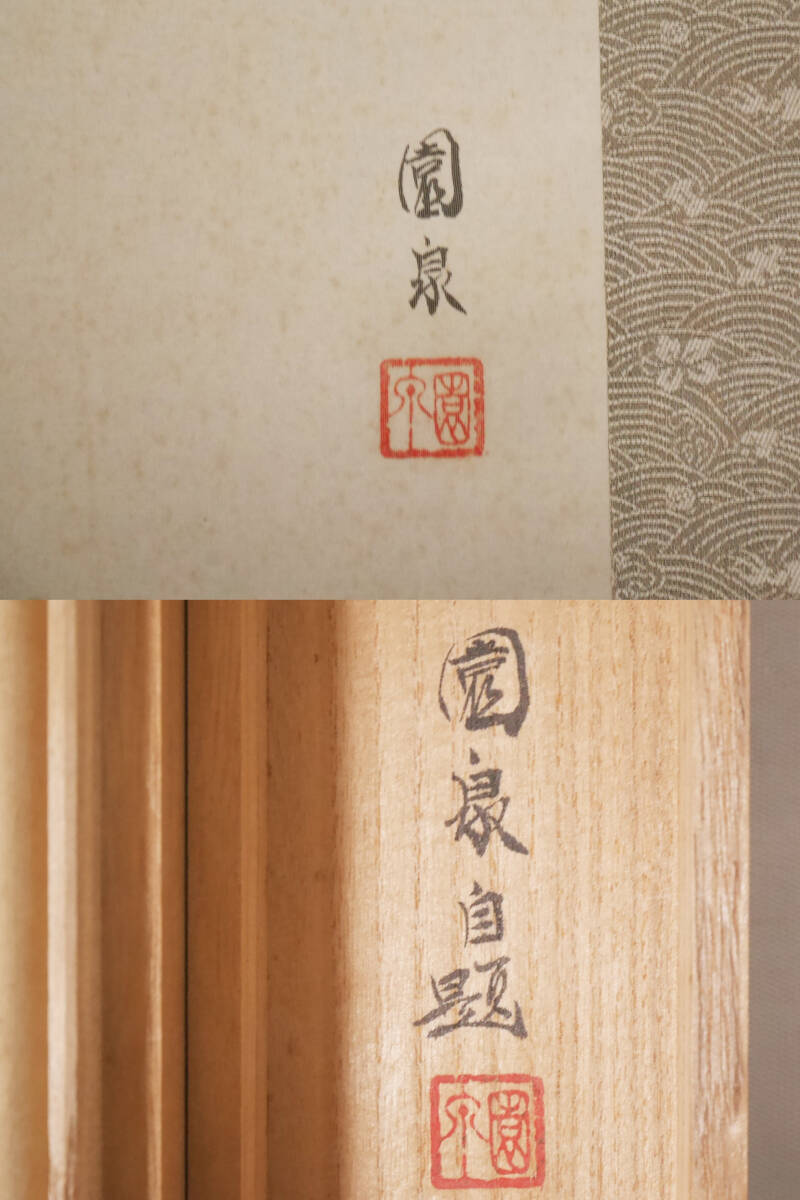 園泉
園泉
園泉自題
園泉